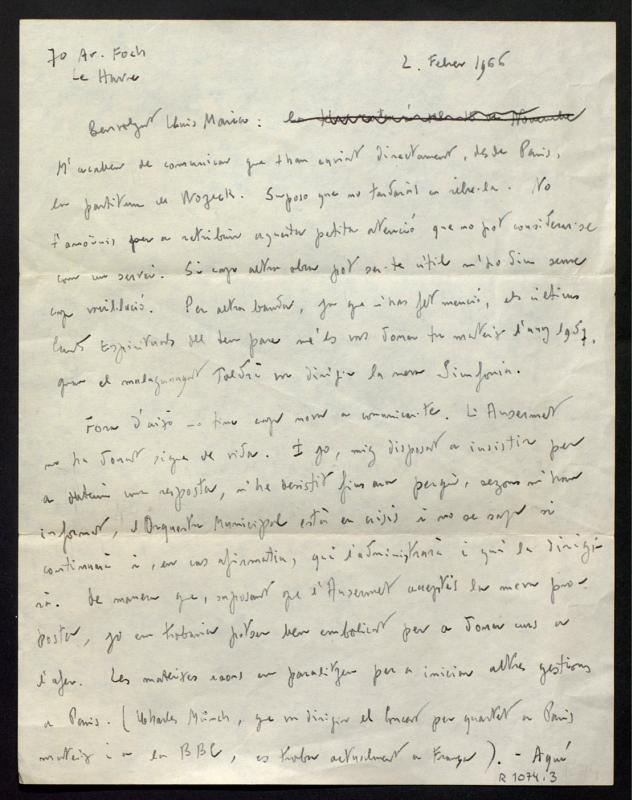 70 Av. Foch
Le Havre
2. Febrer 1966
Benvolgut Lluís Maria:
M'acaben de comunicar que t'han enviat directament, desde París,
la partitura de Wozeck. Suposo que no tardaràs en rebre-la. No
t'amoïnis per a retribuir aquesta petita atenció que no pot considerar-se
com un servei. Si cap altra obra pot ser-te útil m'ho dius sense
cap vacil·lació. Per altra banda, ja que n'has fet menció, els últims
Cants Espirituals del teu pare me'ls vas donar tu mateix l'any 1957,
quan el malaguanyat Toldrà va dirigir la meva Simfonia.
Fora d'això no tinc cap nova a comunicar-te. L'Ansermet
no ha donat signe de vida. I jo, mig disposat a insistir per
a obtenir una resposta, n'he desistit fins ara perquè, segons m'han
informat, l'Orquestra Municipal està en crisis i no se sap si
continuarà i, en cas afirmatiu, qui l'administrarà i qui la dirigi-
rà. De manera que, suposant que l'Ansermet acceptés la meva pro-
posta, jo em trobaria potser ben embolicat per a donar curs a
l'afer. Les mateixes raons em paralitzen per a iniciar altres gestions
a París. (Charles Münch, que va dirigir el Concert per quartet a París
mateix i a la BBC, es troba actualment a França). - Aquí
R 1074.3